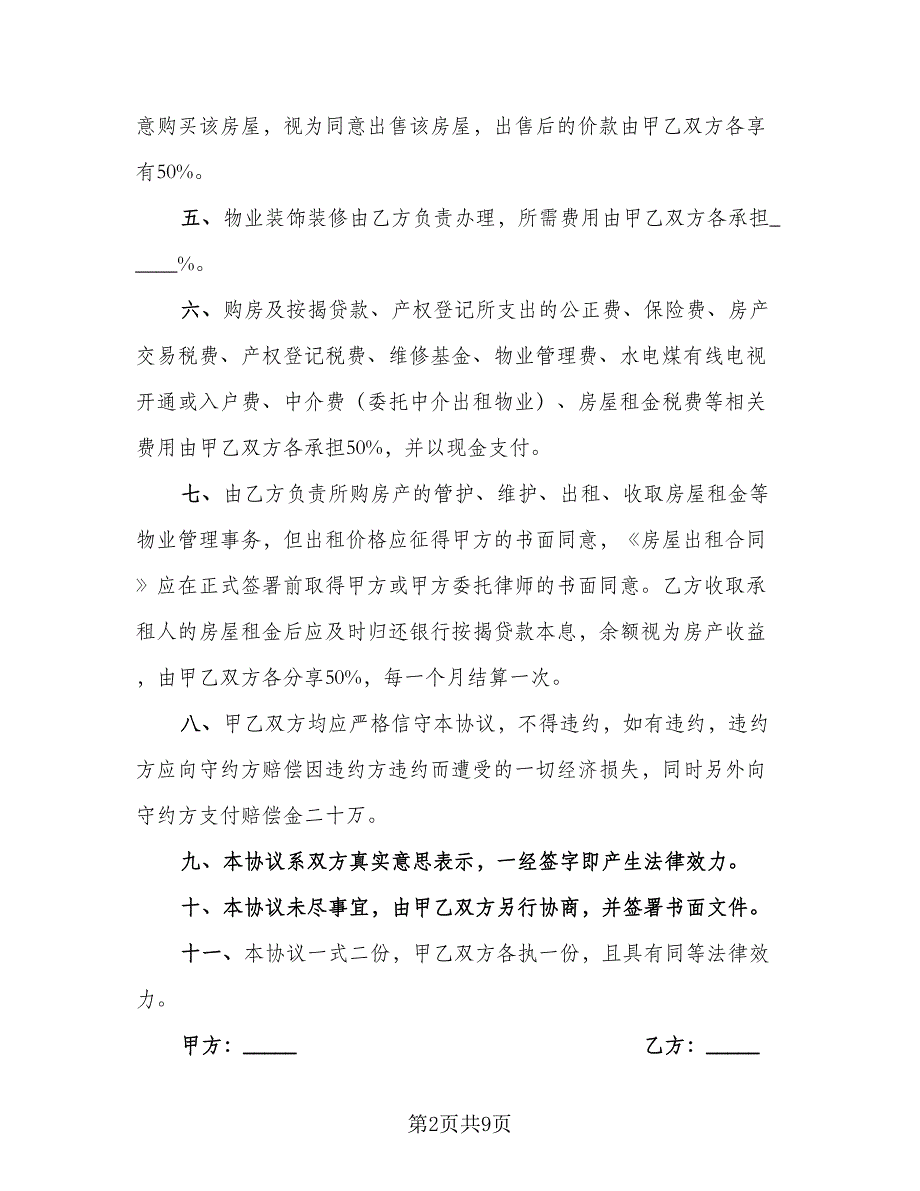 意购买该房屋，视为同意出售该房屋，出售后的价款由甲乙双方各享
有50%。
五、物业装饰装修由乙方负责办理，所需费用由甲乙双方各承担_
____%。
六、购房及按揭贷款、产权登记所支出的公正费、保险费、房产
交易税费、产权登记税费、维修基金、物业管理费、水电煤有线电视
开通或入户费、中介费（委托中介出租物业）、房屋租金税费等相关
费用由甲乙双方各承担50%，并以现金支付。
七、由乙方负责所购房产的管护、维护、出租、收取房屋租金等
物业管理事务，但出租价格应征得甲方的书面同意，《房屋出租合同
》应在正式签署前取得甲方或甲方委托律师的书面同意。乙方收取承
租人的房屋租金后应及时归还银行按揭贷款本息，余额视为房产收益
，由甲乙双方各分享50%，每一个月结算一次。
八、甲乙双方均应严格信守本协议，不得违约，如有违约，违约
方应向守约方赔偿因违约方违约而遭受的一切经济损失，同时另外向
守约方支付赔偿金二十万。
九、本协议系双方真实意思表示，一经签字即产生法律效力。
十、本协议未尽事宜，由甲乙双方另行协商，并签署书面文件。
十一、本协议一式二份，甲乙双方各执一份，且具有同等法律效
力。
甲方：_____ 乙方：_____
第2页共9页